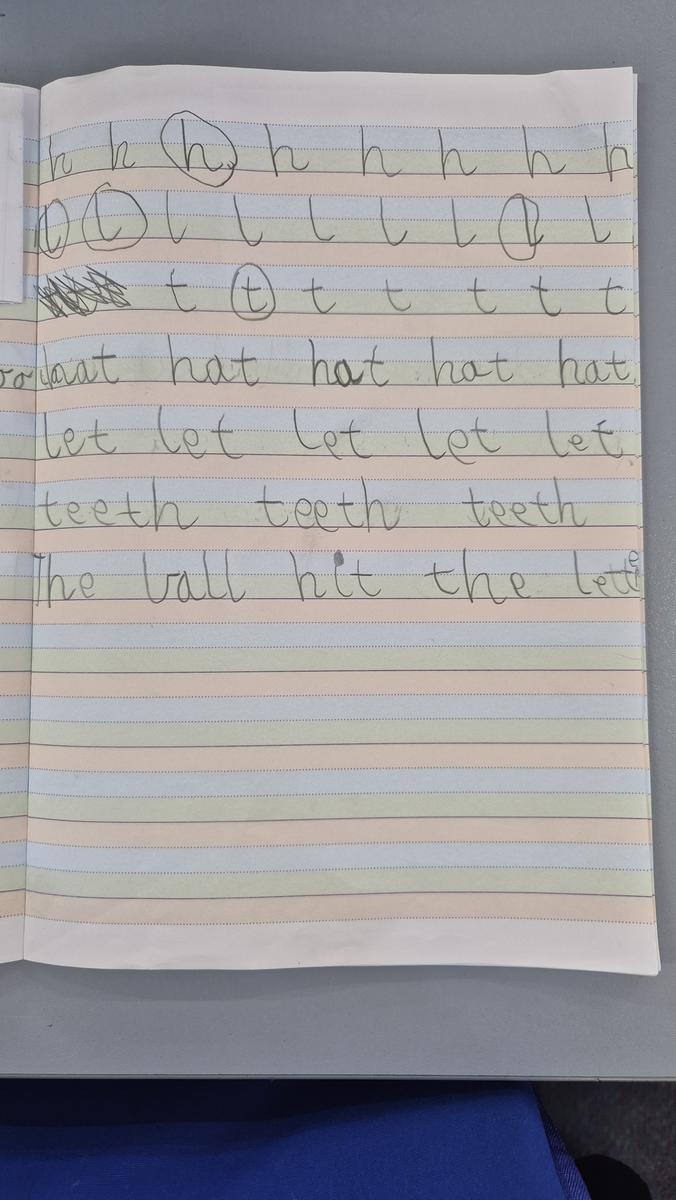 h h h h h h h h
l l l l l l l l l
t t t t t t t
hat hat hat hat
let let let let let
teeth teeth teeth
The ball hit the lette